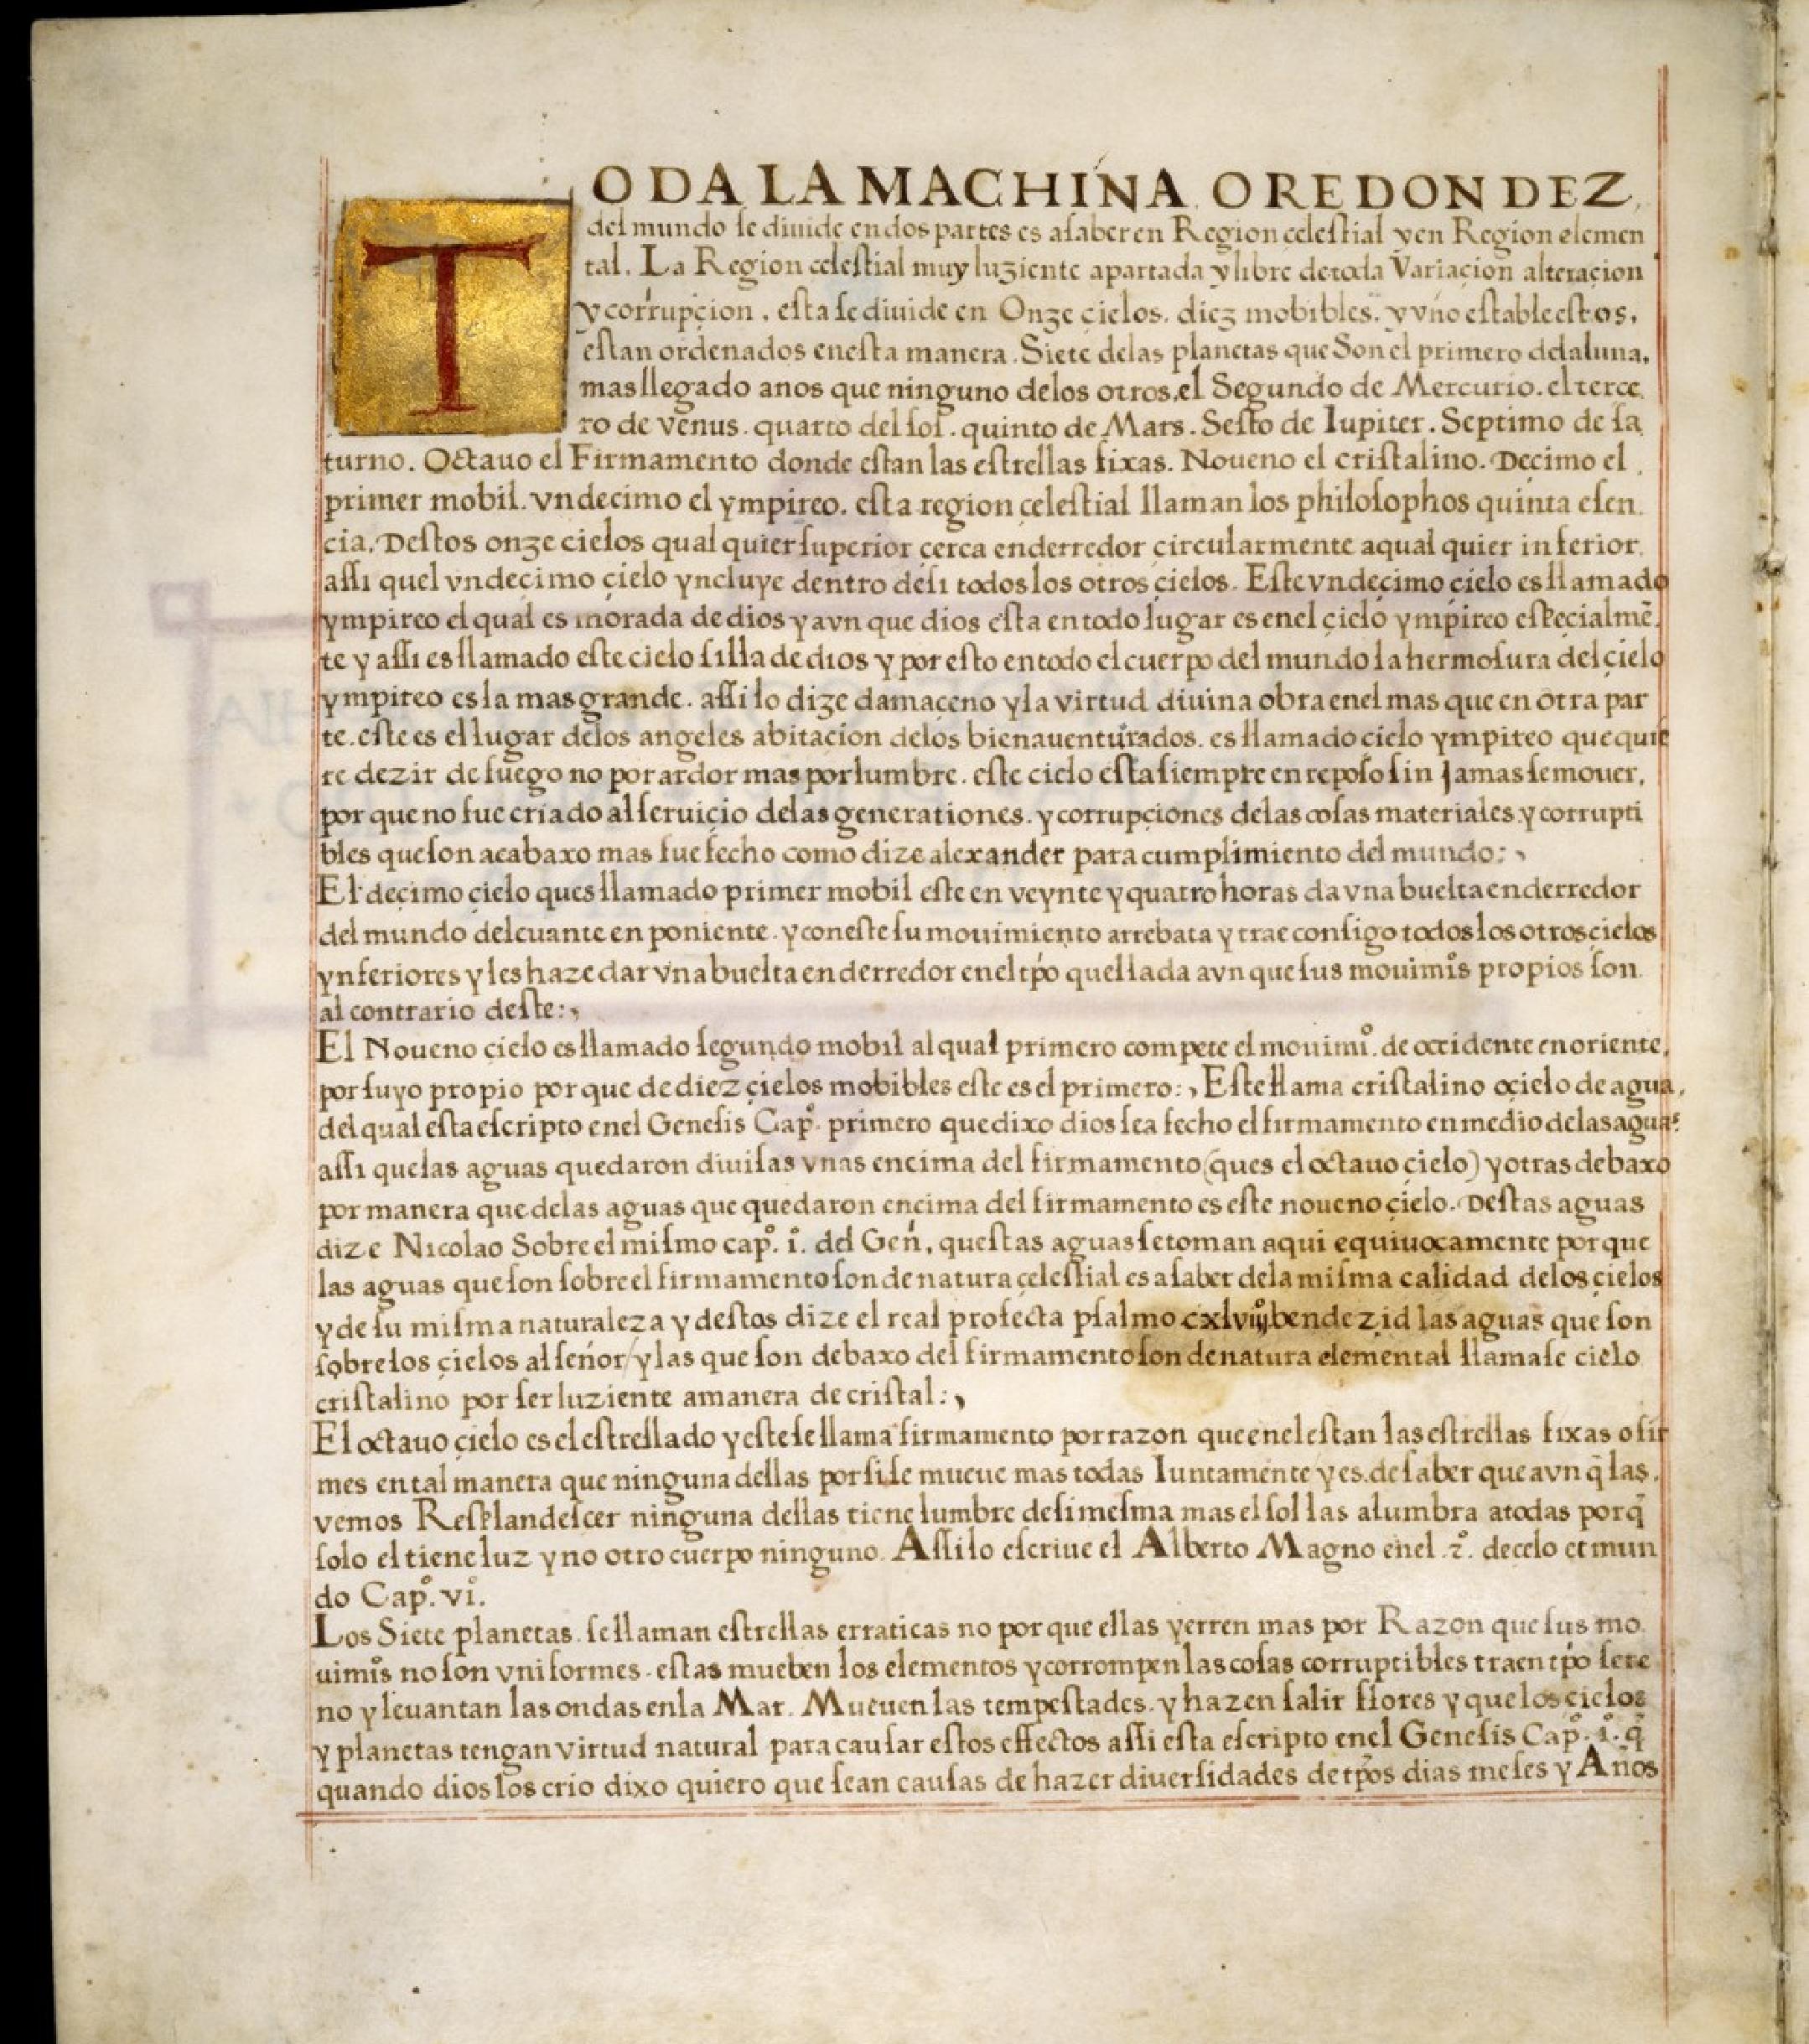 TODA LA MACHINA O REDONDEZ
del mundo se diuide en dos partes es a saber en Region celestial y en Region elemen
tal. La Region celestial muy luziente apartada y libre de toda Variaçion alteraçion
y corrupçion. esta se diuide en Onze çielos. diez mobibles. y vno estable estos.
estan ordenados en esta manera. Siete de las planetas que Son el primero de la luna.
mas llegado a nos que ninguno de los otros. el Segundo de Mercurio. el terce
ro de venus. quarto del sol. quinto de Mars. Sesto de Iupiter. Septimo de sa
turno. Octauo el Firmamento donde estan las estrellas fixas. Noueno el cristalino. Decimo el
primer mobil. vndecimo el ympireo. esta region çelestial llaman los philosophos quinta esen
cia. Destos onze cielos qual quier superior çerca enderredor çircularmente a qual quier inferior.
assi quel vndecimo çielo yncluye dentro de si todos los otros çielos. Este vndeçimo çielo es llamado
ympireo el qual es morada de dios y avn que dios esta en todo lugar es en el çielo ympireo espeçialmẽ
te y assi es llamado este cielo silla de dios y por esto en todo el cuerpo del mundo la hermosura del çielo
ympireo es la mas grande. assi lo dize damaçeno y la virtud diuina obra en el mas que en otra par
te. este es el lugar de los angeles abitacion de los bienauenturados. es llamado cielo ympireo que quie
re dezir de fuego no por ardor mas por lumbre. este cielo esta siempre en reposo sin Jamas se mouer.
por que no fue criado al seruiçio de las generationes. y corrupçiones de las cosas materiales y corrupti
bles que son aca baxo mas fue fecho como dize alexander para cumplimiento del mundo:,
El deçimo çielo ques llamado primer mobil este en veynte y quatro horas da vna buelta enderredor
del mundo de leuante en poniente. y con este su mouimiento arrebata y trae consigo todos los otros çielos
ynferiores y les haze dar vna buelta enderredor en el tp̃o quel la da avn que sus mouimiº̃s propios son
al contrario deste:,
El Noueno çielo es llamado segundo mobil al qual primero compete el mouimiº. de occidente en oriente.
por suyo propio por que de diez çielos mobibles este es el primero:, Este llama cristalino o çielo de agua.
del qual esta escripto en el Genesis Capº. primero que dixo dios sea fecho el firmamento en medio de las aguas
assi que las aguas quedaron diuisas vnas encima del firmamento (ques el octauo çielo) y otras debaxo
por manera que de las aguas que quedaron encima del firmamento es este noueno çielo. Destas aguas
dize Nicolao Sobre el mismo capº. iº. del Geñ. questas aguas se toman aqui equiuocamente por que
las aguas que son sobre el firmamento son de natura çelestial es a saber de la misma calidad de los çielos
y de su misma naturaleza y destas dize el real profecta psalmo cxlviijº bendezid las aguas que son
sobre los çielos al señor/ y las que son debaxo del firmamento son de natura elemental llamase cielo
cristalino por ser luziente a manera de cristal:,
El octauo çielo es el estrellado y este se llama firmamento por razon que en el estan las estrellas fixas o fir
mes en tal manera que ninguna dellas por si se mueue mas todas Iuntamente y es de saber que avn q̃ las.
vemos Resplandescer ninguna dellas tiene lumbre de si mesma mas el sol las alumbra a todas porq̃
solo el tiene luz y no otro cuerpo ninguno. Assi lo escriue el Alberto Magno en el .2º. de celo et mun
do Capº. viº.
Los Siete planetas. se llaman estrellas erraticas no por que ellas yerren mas por Razon que sus mo
uimiº̃s no son vniformes. estas mueben los elementos y corrompen las cosas corruptibles traen tp̃o sere
no y leuantan las ondas en la Mar. Mueuen las tempestades. y hazen salir flores y que los çielos
y planetas tengan virtud natural para causar estos effectos assi esta escripto en el Genesis Capº. iº. q̃
quando dios los crio dixo quiero que sean causas de hazer diuersidades de tp̃os dias meses y Años